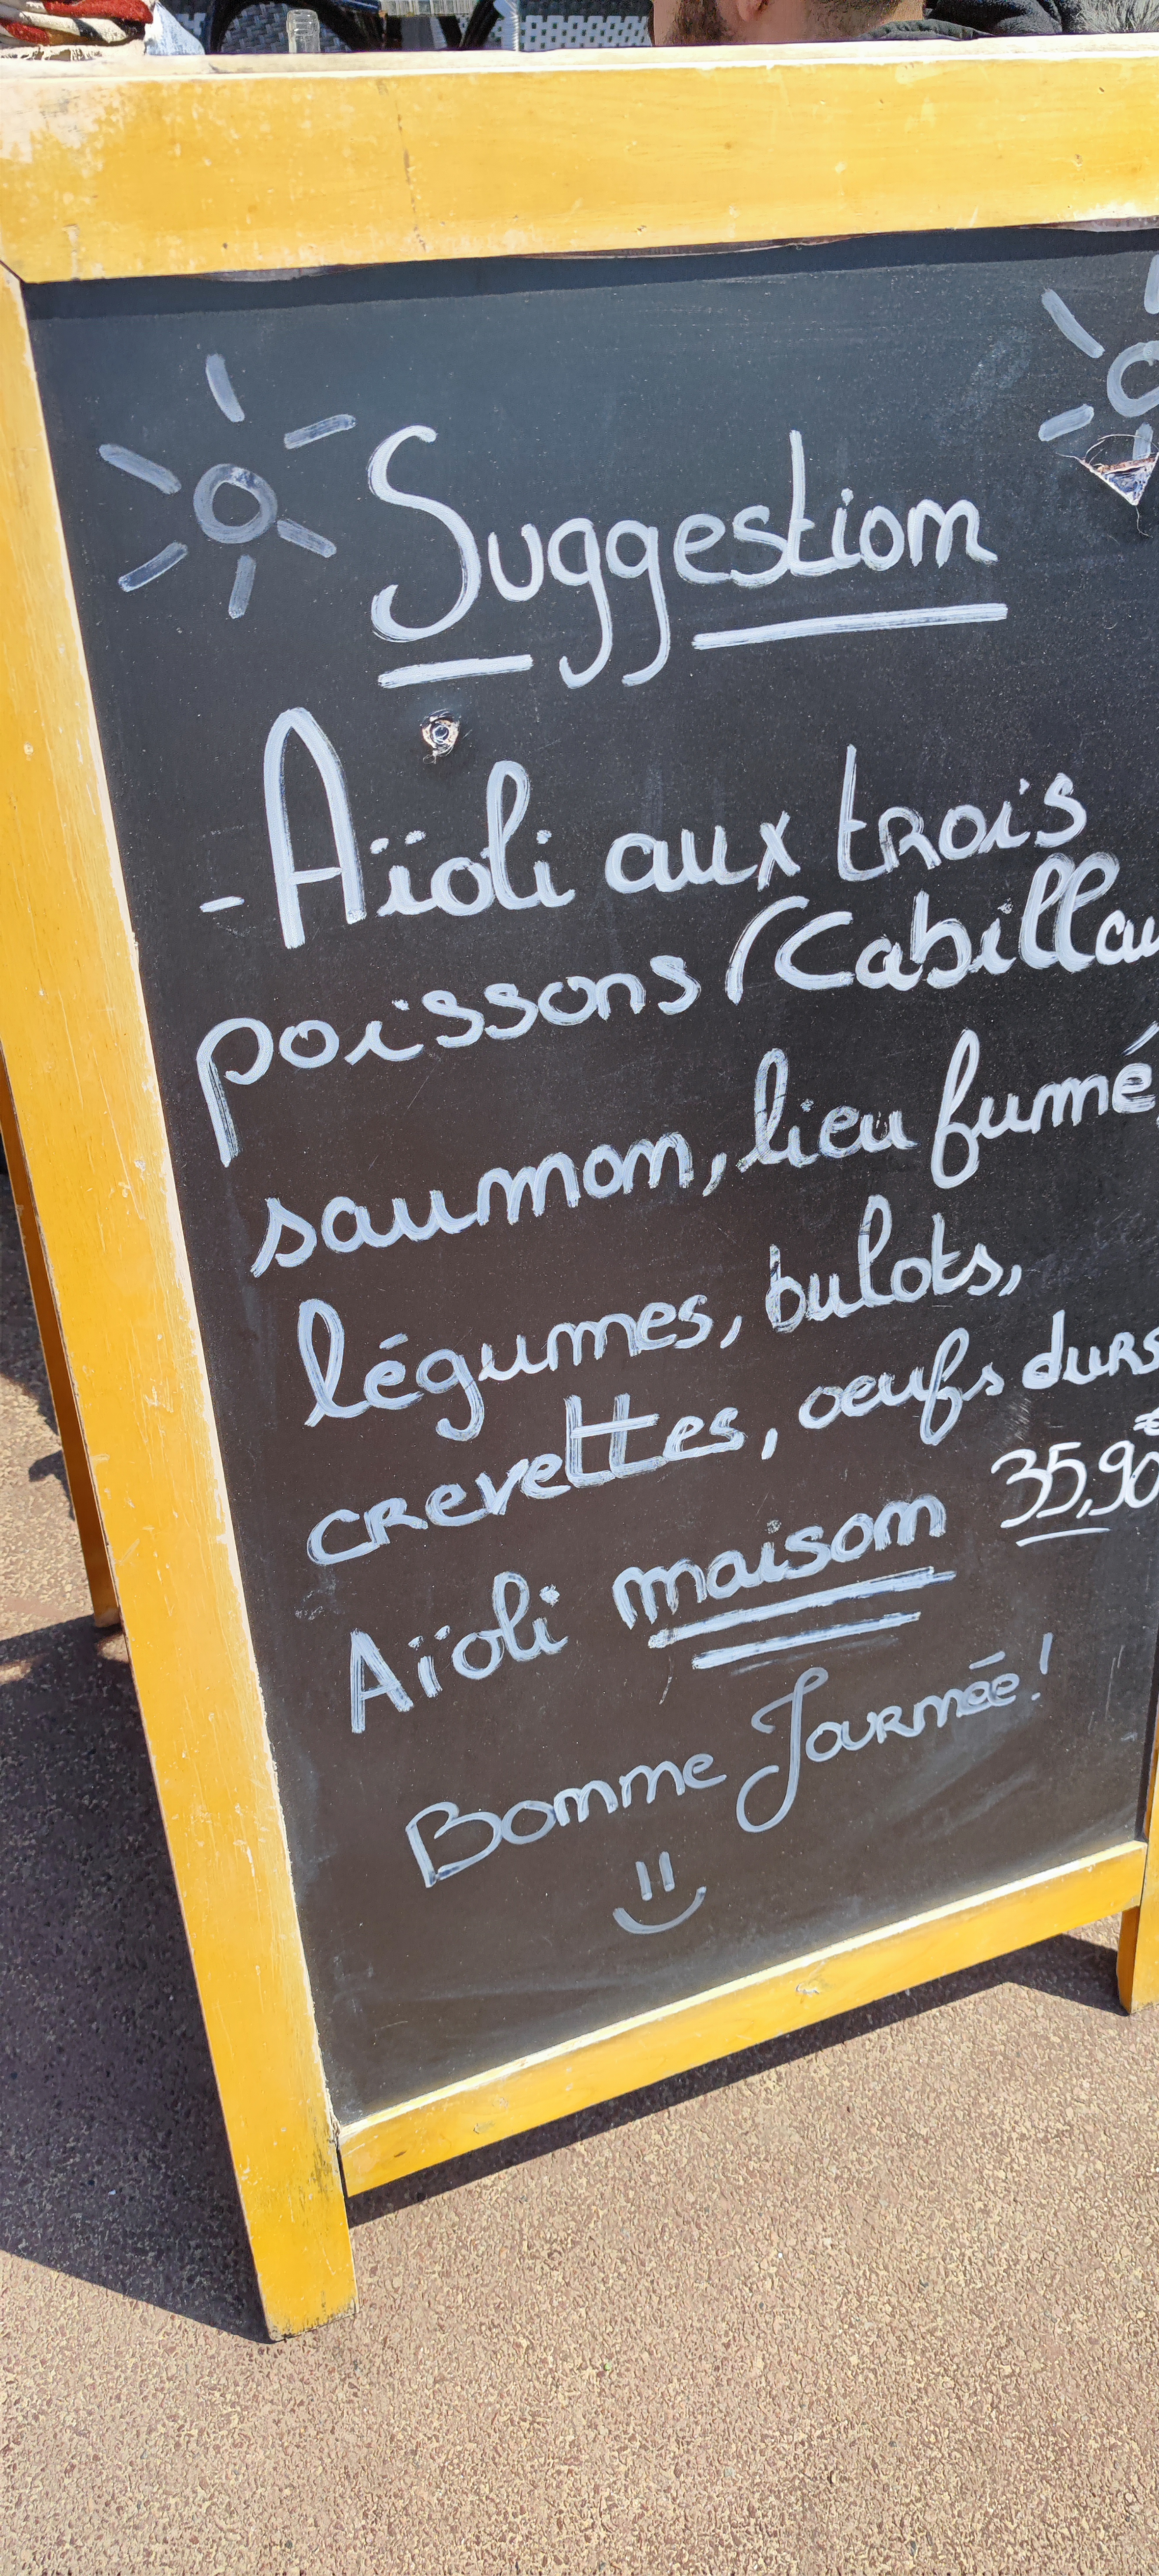 Suggestion
- Aïoli aux trois
poissons (Cabillau
saumon, lieu fumé,
légumes, bulots,
crevettes, oeufs durs
35,90€
Aïoli maison
Bonne Journée!